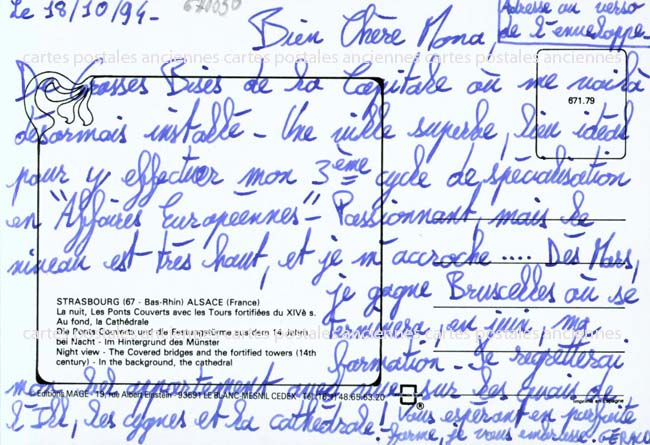 Le 18/10/94-
671050
Adresse au verso
de l'enveloppe-
Bien Chère Mona,
cartes postales anciennes cartes postales anciennes cartes postales anciennes
De Grosses Bises de la Capitale où me voilà
671.79
désormais installé - Une ville superbe, lieu idéal
pour y effectuer mon 3ème cycle de spécialisation
en "Affaires Européennes" - Passionnant, mais le
niveau est très haut, et je m'accroche .... Dès Mars,
je gagne Bruxelles où se
terminera, en juin, ma
formation - Je regretterai
mon bel appartement avec vue sur les quais de
l'Ill, les cygnes et la cathédrale! Vous espérant en parfaite
forme, je vous embrasse.
STRASBOURG (67 - Bas-Rhin) ALSACE (France)
La nuit, Les Ponts Couverts avec les Tours fortifiées du XIVè s.
Au fond, la Cathédrale
Die Ponts Couverts und die Festungstürme aus dem 14. Jahrh.
bei Nacht - Im Hintergrund des Münster
Night view - The Covered bridges and the fortified towers (14th
century) - In the background, the cathedral
cartes postales anciennes cartes postales anciennes cartes postales anciennes
Editions MAGE - 19, rue Albert Einstein - 93691 LE BLANC-MESNIL CEDEX - Tél. (16-1) 48.65.63.20
®
Imprimé en Espagne